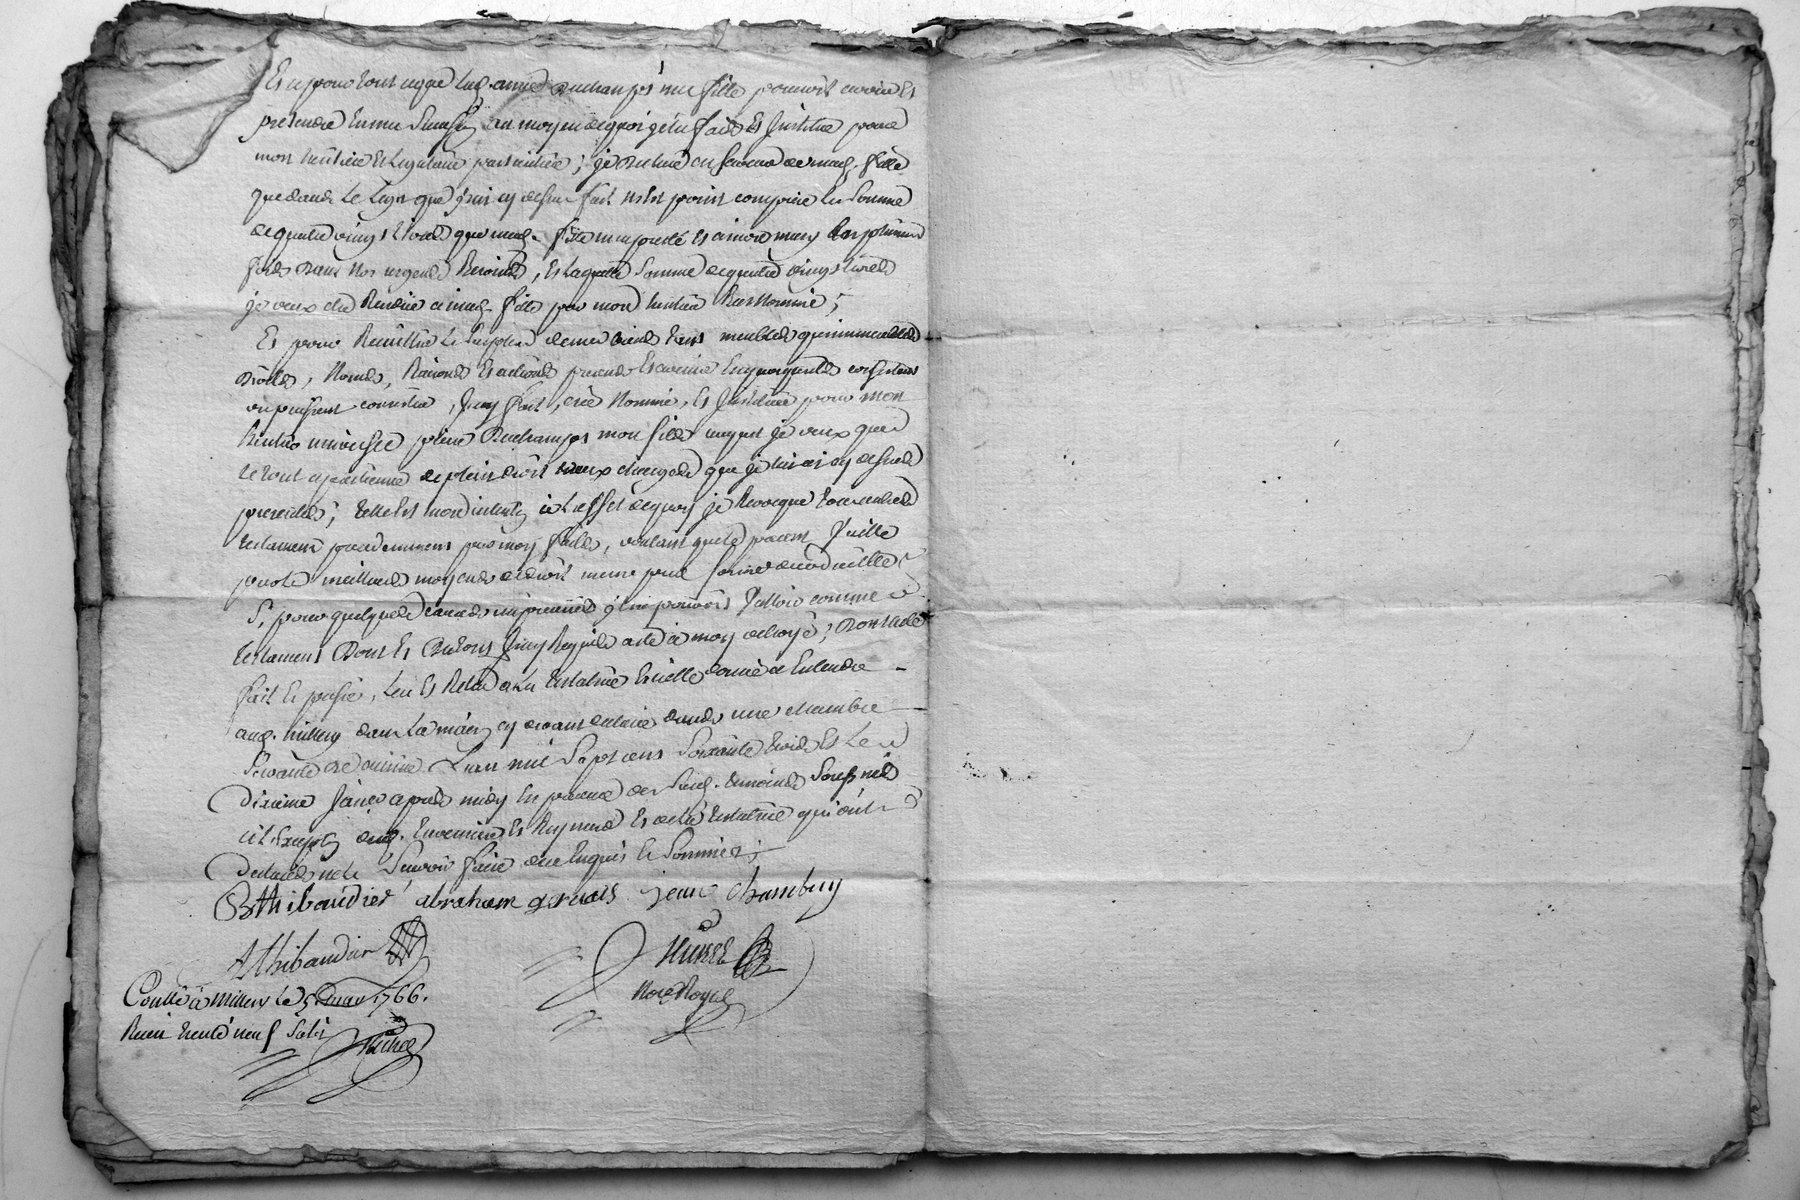 Et pour tout ce que lad. anne Duchamps ma fille pourroit avoir et
prétendre en ma au moyen de quoi je la fait et Institue pour
mon héritière et Legataire particulière; je en faveur de mad. fille
que dans le Legs que j'ai cy dessus fait n'est point comprise la Somme
de quatre vingt Livres que mad. fille m'a presté et à mon mary
fois dans nos urgents Besoins, et laquelle Somme de quatre vingt Livres
je veux etre Rendüe à mad. fille par mon héritier Bas Nommé;
Et pour le Surplus de mes biens tant meubles qu'immeubles
Droits, Noms, Raisons et actions presents et avenir en quoy qu'ils consistent
ou puissent consister, J'ay fait, créé Nommé, et Institué pour mon
héritier universel pierre Duchamps mon fils auquel je veux que
le tout apartienne de plein droit aux charges que je lui ai cy dessus
prescrittes; telle est mon intention à l'effet de quoy je Revoque tous autres
testaments precedemment par moy faits, voulant que le present Vaille
par les meilleurs moyens de droit meme par forme de codicille
Si pour quelques causes impreveües il ne pouvoit Valloir comme
testament Dont et Du tout J'ay Requis acte à moy octroyé; Dont acte
fait et passé, Leu et Relu à La testatrice et icelle donné à Entendre
aud. millery dans La maison cy devant declarée dans une chambre
Servante de cuisine L'an mil Sept cent Soixante trois et Le
Dixieme Janvier après midy en presence des Susd. temoins Soussignés
à l'exception dud. et Reynaud et de lad. testatrice qui ont
Declarés ne le Scavoir faire de ce Enquis et Sommés;
B thibaudier abraham gervais jean Chambry
A thibaudier
Not. Royal
Conllé à millery Le 5 mars 1766.
Receu trente neuf Sols